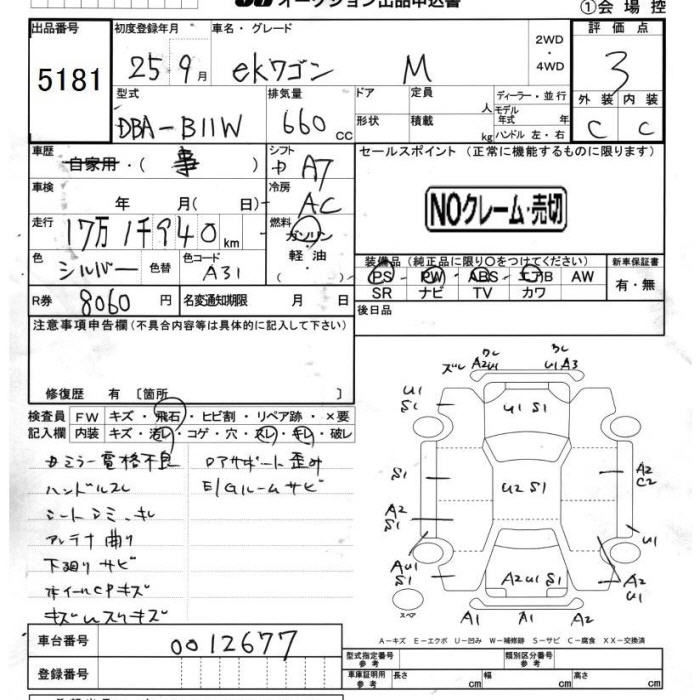 オークション出品申込書
①会場控
出品番号
5181
初度登録年月
25 9月
車名・グレード
ekワゴン M
2WD
・
4WD
評価点
3
外装 内装
C C
型式
DBA-B11W
排気量
660cc
ドア 定員 人
形状 積載 kg
ディーラー・並行
モデル年式 年
ハンドル 左・右
車歴
自家用・( 事 )
シフト
中 A7
車検
年 月( 日)
冷房
AC
走行
17万1千940km
燃料
ガソリン
軽油
( )
色
シルバー
色替
色コード
A31
R券
8060円
名変通知期限 月 日
セールスポイント (正常に機能するものに限ります)
NOクレーム・売切
装備品(純正品に限り○をつけてください)
PS PW ABS エアB AW
SR ナビ TV カワ
新車保証書
有・無
後日品
注意事項申告欄(不具合内容等は具体的に記入して下さい)
修復歴 有 〔箇所 〕
検査員記入欄
FW キズ・飛石・ヒビ割・リペア跡・×要
内装 キズ・汚レ・コゲ・穴・スレ・キレ・破レ
ミラー電格不良
ハンドルスレ
シートシミ、キレ
アンテナ曲り
下廻りサビ
ホイールCPキズ
Dアサポート歪み
E/Gルームサビ
ズレ
A2U1
U1 A3
U1
S1
U1 S1
S1
U2 S1
A2
C2
A2
S1
U1
AU1
S1
A2U1 S1
A2
U1
スペア
A1 A1 A2
A-キズ E-エクボ U-凹み W-補修跡 S-サビ C-腐食 XX-交換済
車台番号
0012677
登録番号
型式指定番号
参考
類別区分番号
参考
車庫証明
参考
長さ cm 幅 cm 高さ cm